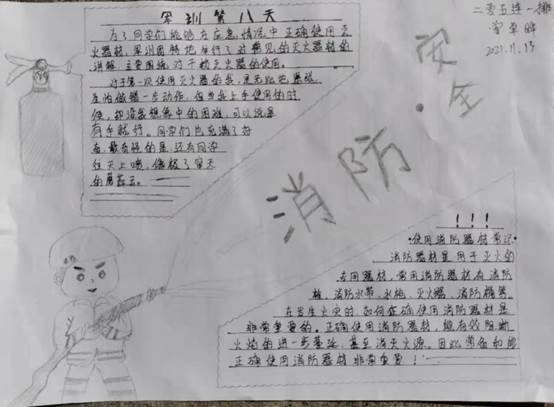 军训第八天
为了同学们能够在应急情况中正确使用灭
火器材,军训团特地举行了对常见的灭火器材的
讲解,主要围绕对干粉灭火器的使用。
对于第一次使用灭火器的我,
生怕做错一步动作,但当真上手使用的时
候,却没有想象中的困难,可以说是
有手就行。同学们也充满了好
奇,最有趣的是,还有同学
往天上喷,像极了穿天
的蘑菇云。
二零五连一排
2021.11.17
消防·安全
!!!
·使用消防器材常识·
消防器材是用于灭火的
专用器材,常用消防器材有消防
栓、消防水带、水枪、灭火器、消防桶等。
在发生火灾时,如何正确使用消防器材是
非常重要的。正确使用消防器材,能有效阻断
火焰的进一步蔓延,甚至消灭火源。因此常备和能
正确使用消防器材非常重要!